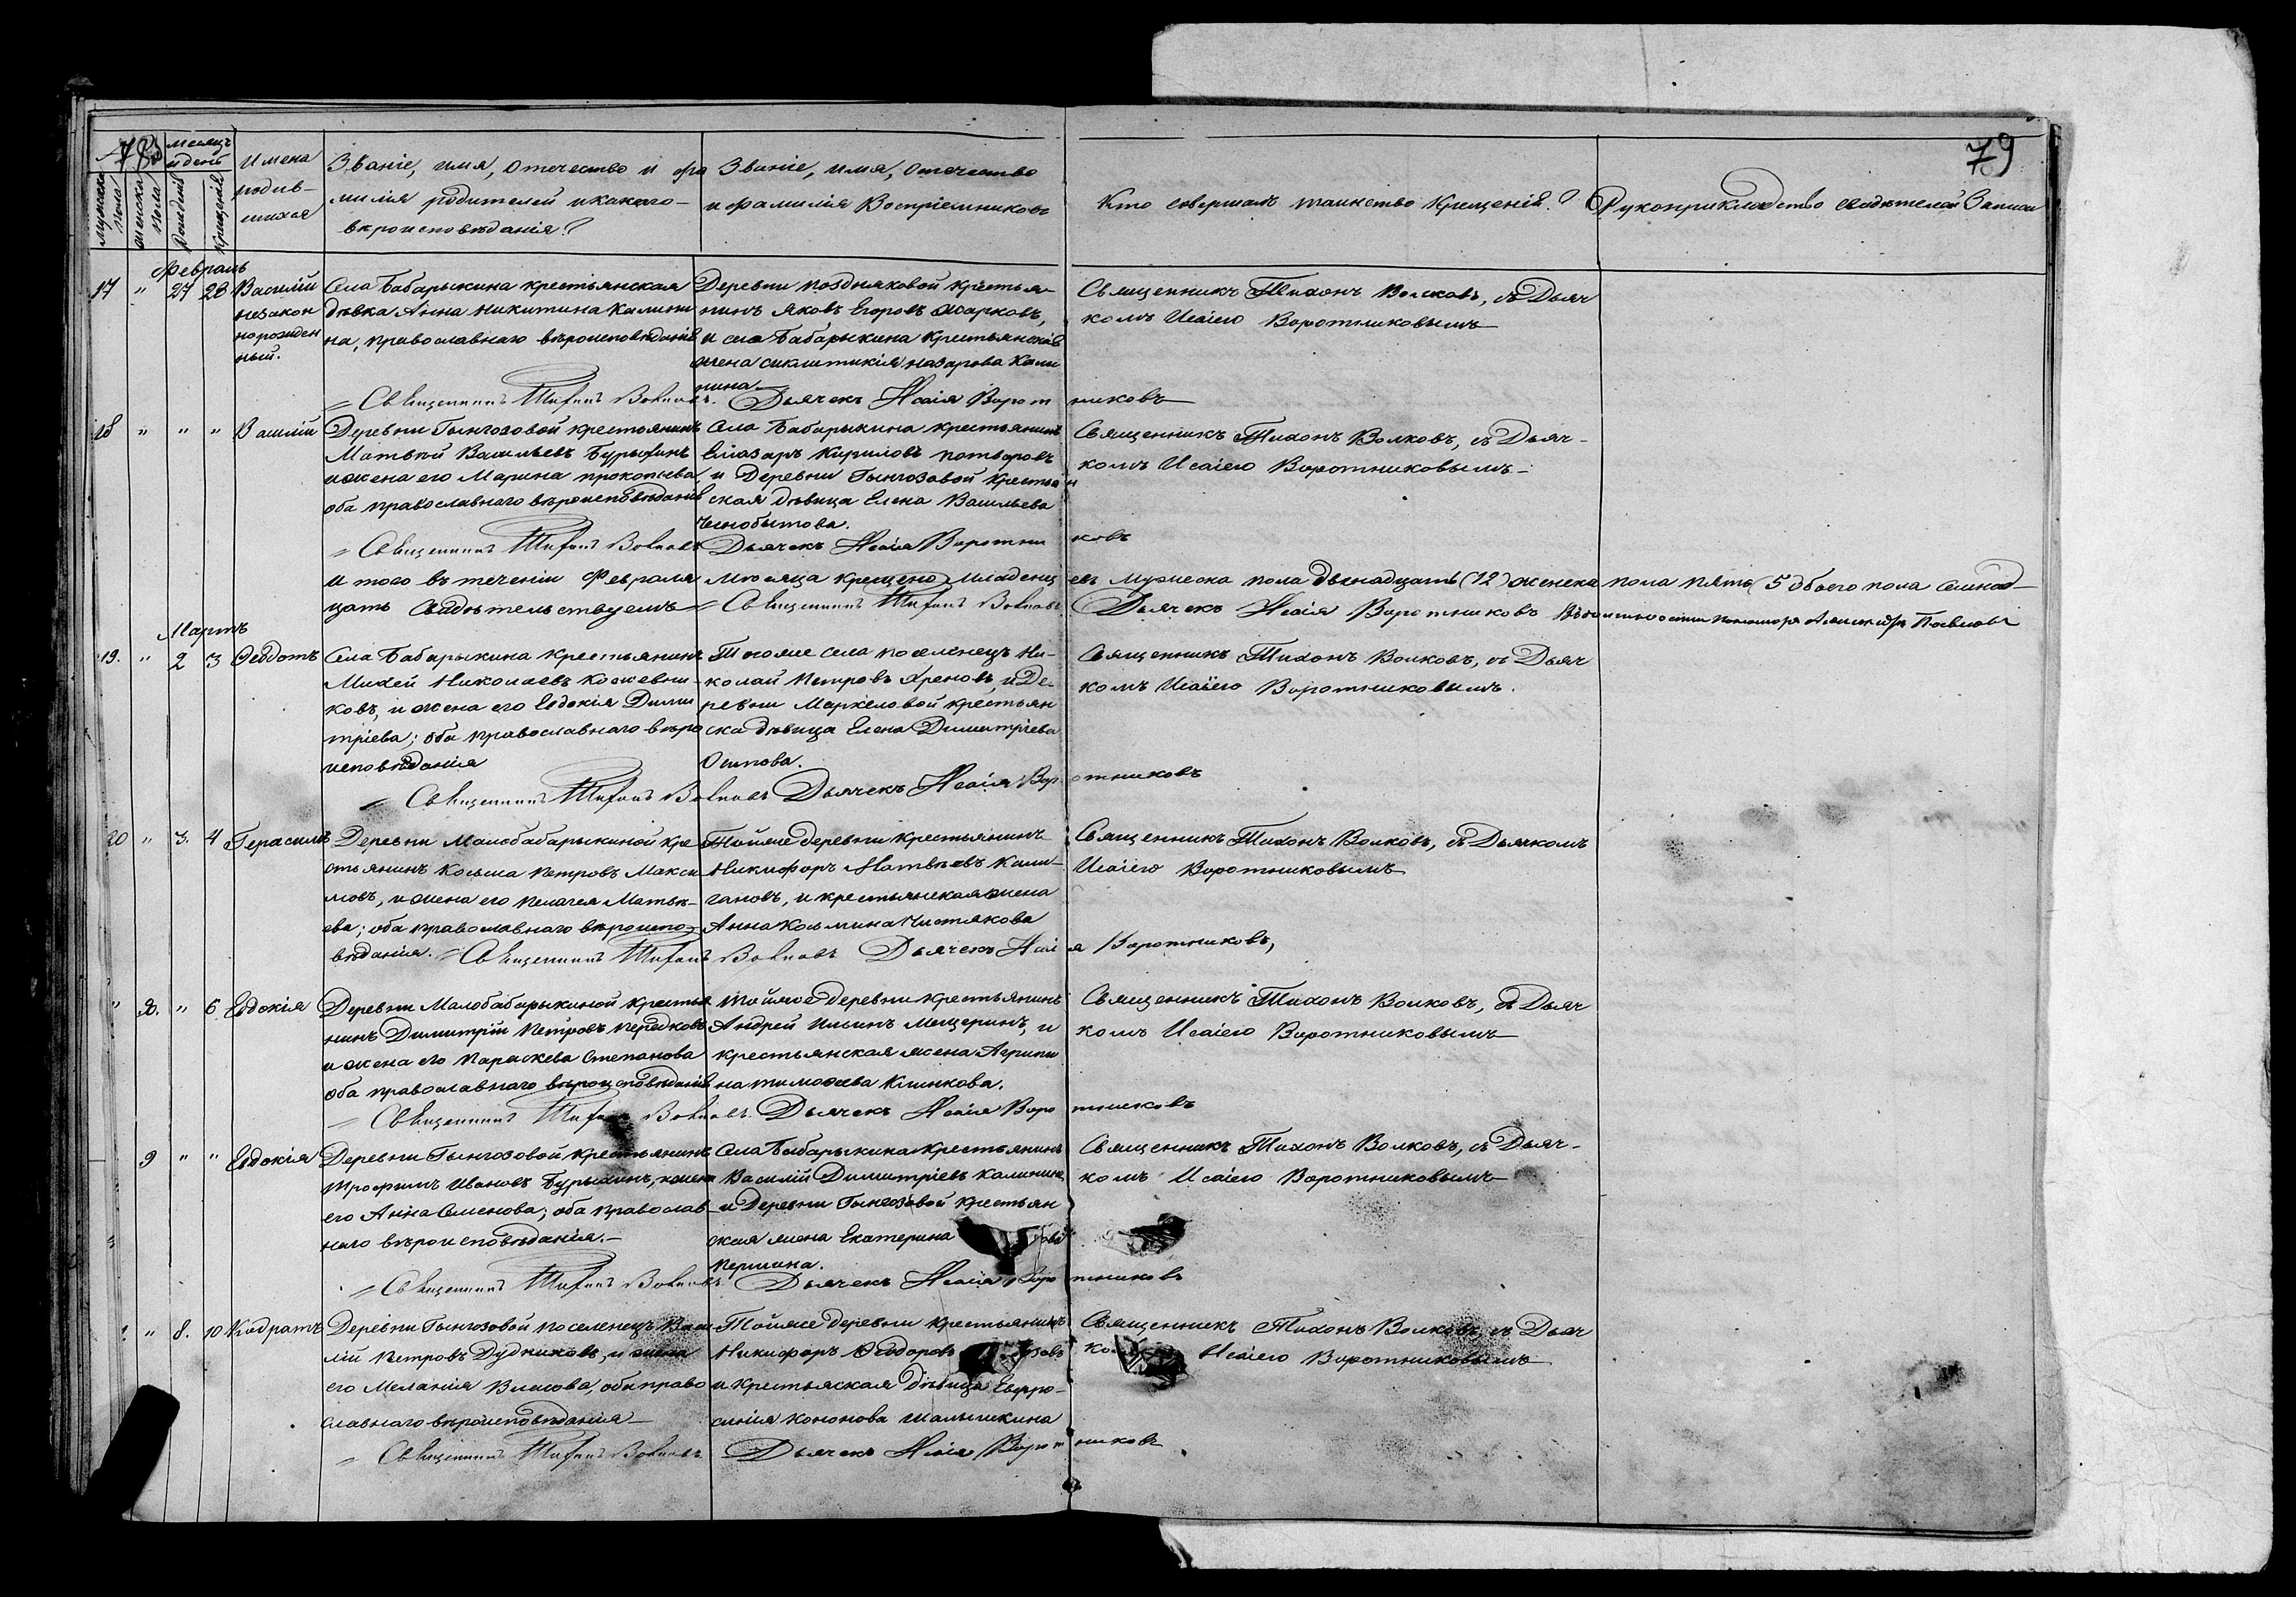 78
79
Мѣсяцъ
и день
Мужска
пола
Женска
пола
Рожденія
Крещенія
Имена
родив-
шихся
Званіе, имя, отечество и фа
милія родителей и какого-
вѣроисповѣданія?
Званіе, имя, отечество
и фамилія Воспріемниковъ
Кто совершалъ таинство Крещенія?
Рукоприкладство свидѣтелей Записи
Февраль
17 " 27 28 Василій
незакон
норожден
ный.
Села Бабарыкина крестьянская
дѣвка Анна Никитина Калини
на, православнаго вѣроисповѣданія
Деревни Поздняковой крестья-
нинъ Яковъ Егоровъ Жарковъ,
и села Бабарыкина крестьянская
жена Сиклитикія Назарова Кали
нина
Священникъ Тихонъ Волковъ, съ Дьяч
комъ Исаіею Воротниковымъ
Священникъ Тихонъ Волковъ. Дьячекъ Исаія Воротниковъ
18 " " " Василій
Деревни Гынгозовой крестьянинъ
Матвѣй Васильевъ Бурыхинъ
и жена его Марина Прокопьева,
оба православнаго вѣроисповѣданія
Села Бабарыкина крестьянинъ
Еліазаръ Кириловъ Потворовъ
и Деревни Гынгозовой крестья
ская дѣвица Елена Васильева
Чернобытова.
Священникъ Тихонъ Волковъ, съ Дьяч-
комъ Исаіею Воротниковымъ
Священникъ Тихонъ Волковъ Дьячекъ Исаія Воротниковъ
Итого въ теченіи Февраля мѣсяца крещено младенцевъ Мужеска пола двѣнадцать (12) женска пола пять (5 обоего пола семнад-
цать Свидѣтельствуемъ Священникъ Тихонъ Волковъ Дьячекъ Исаія Воротниковъ Въ должности пономаря Александръ Павловъ
Мартъ
19. " 2 3 Ѳеодотъ
Села Бабарыкина крестьянинъ
Михей Николаевъ Кожевни-
ковъ, и жена его Евдокія Дими
тріева; оба православнаго вѣро
исповѣданія
Того же села поселенецъ Ни-
колай Петровъ Хреновъ, и Де-
ревни Маркеловой крестьян
ска дѣвица Елена Димитріева
Осипова.
Священникъ Тихонъ Волковъ, съ Дьяч
комъ Исаіею Воротниковымъ.
Священникъ Тихонъ Волковъ Дьячекъ Исаія Воротниковъ
20 " 3. 4 Герасимъ
Деревни Малобабарыкиной кре
стьянинъ Косьма Петровъ Макси
мовъ, и жена его Пелагея Матвѣ-
ева; оба православнаго вѣроиспо
вѣданія.
Той же деревни крестьянинъ
Никифоръ Матвѣевъ Кали-
гановъ, и крестьянская жена
Анна Косьмина Чистякова
Священникъ Тихонъ Волковъ, съ Дьячкомъ
Исаіею Воротниковымъ
Священникъ Тихонъ Волковъ Дьячекъ Исаія Воротниковъ,
" 8. " 6 Евдокія
Деревни Малобабарыкиной крестья
нинъ Димитрій Петровъ Передковъ
и жена его Параскева Степанова
оба православнаго вѣроисповѣданія
Той же деревни крестьянинъ
Андрей Ильинъ Мещеринъ, и
крестьянская жена Агрипи
на Тимоѳеева Клинкова.
Священникъ Тихонъ Волковъ, съ Дьяч
комъ Исаіею Воротниковымъ
Священникъ Тихонъ Волковъ. Дьячекъ Исаія Воротниковъ
9 " " Евдокія
Деревни Гынгозовой крестьянинъ
Трофимъ Ивановъ Бурыхинъ, и жена
его Анна Семенова; оба православ-
наго вѣроисповѣданія.
Села Бабарыкина крестьянинъ
Василій Димитріевъ Калининъ,
и Деревни Гынгозовой крестьян
ская жена Екатерина
Першина.
Священникъ Тихонъ Волковъ, съ Дьяч-
комъ Исаіею Воротниковымъ
Священникъ Тихонъ Волковъ. Дьячекъ Исаія Воротниковъ
" 8. 10 Кодратъ
Деревни Гынгозовой поселенецъ Васи
лій Петровъ Дудниковъ, и жена
его Меланія Власова, оба право
славнаго вѣроисповѣданія
Той же деревни крестьянинъ
Никифоръ Ѳеодоровъ
и крестьяская дѣвица Евфро-
синія Кононова Малышкина
Священникъ Тихонъ Волковъ, съ Дьяч
ко Исаіею Воротниковымъ
Священникъ Тихонъ Волковъ. Дьячекъ Исаія Воротниковъ